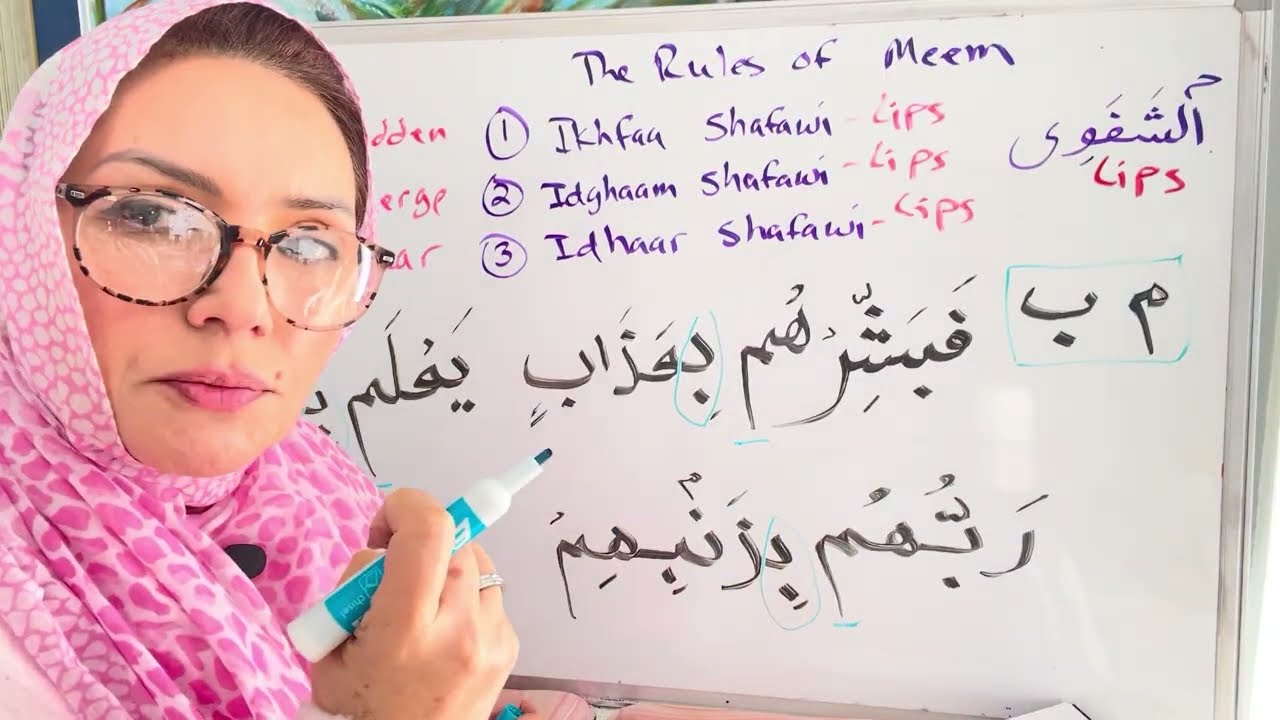 The Rules of Meem
① Ikhfaa Shafawi - Lips
② Idghaam Shafawi - Lips
③ Idhaar Shafawi - Lips
الشَفَوِى
Lips
م ب
فَبَشِّرْهُم بِعَذَابٍ يَعْلَم
رَبُّهُم بِذَنۢبِهِمْ